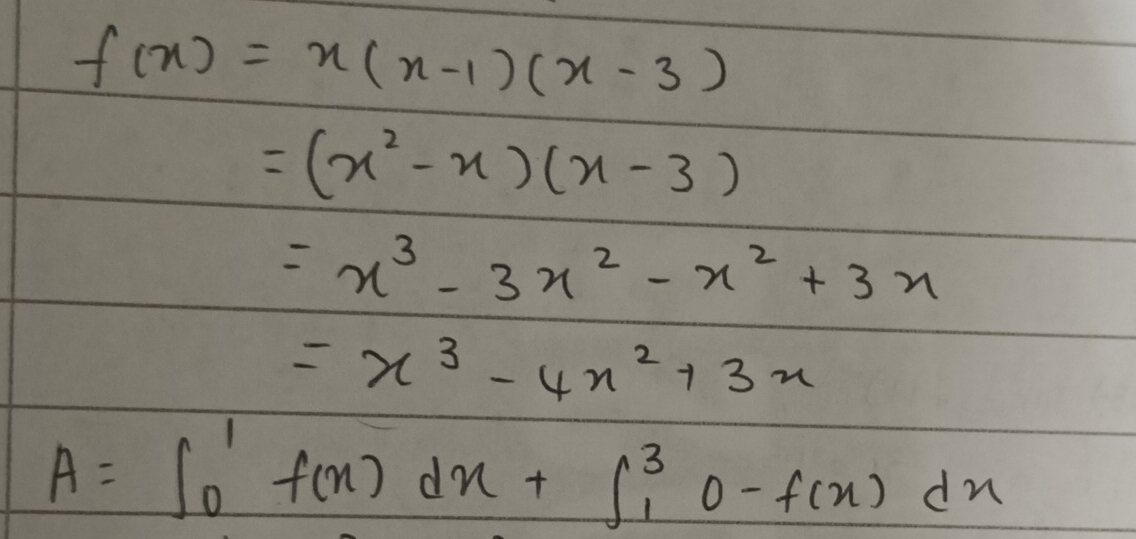 f(x) = x(x-1)(x-3)
= (x² - x)(x - 3)
= x³ - 3x² - x² + 3x
= x³ - 4x² + 3x
A = ∫₀¹ f(x) dx + ∫₁³ 0 - f(x) dx